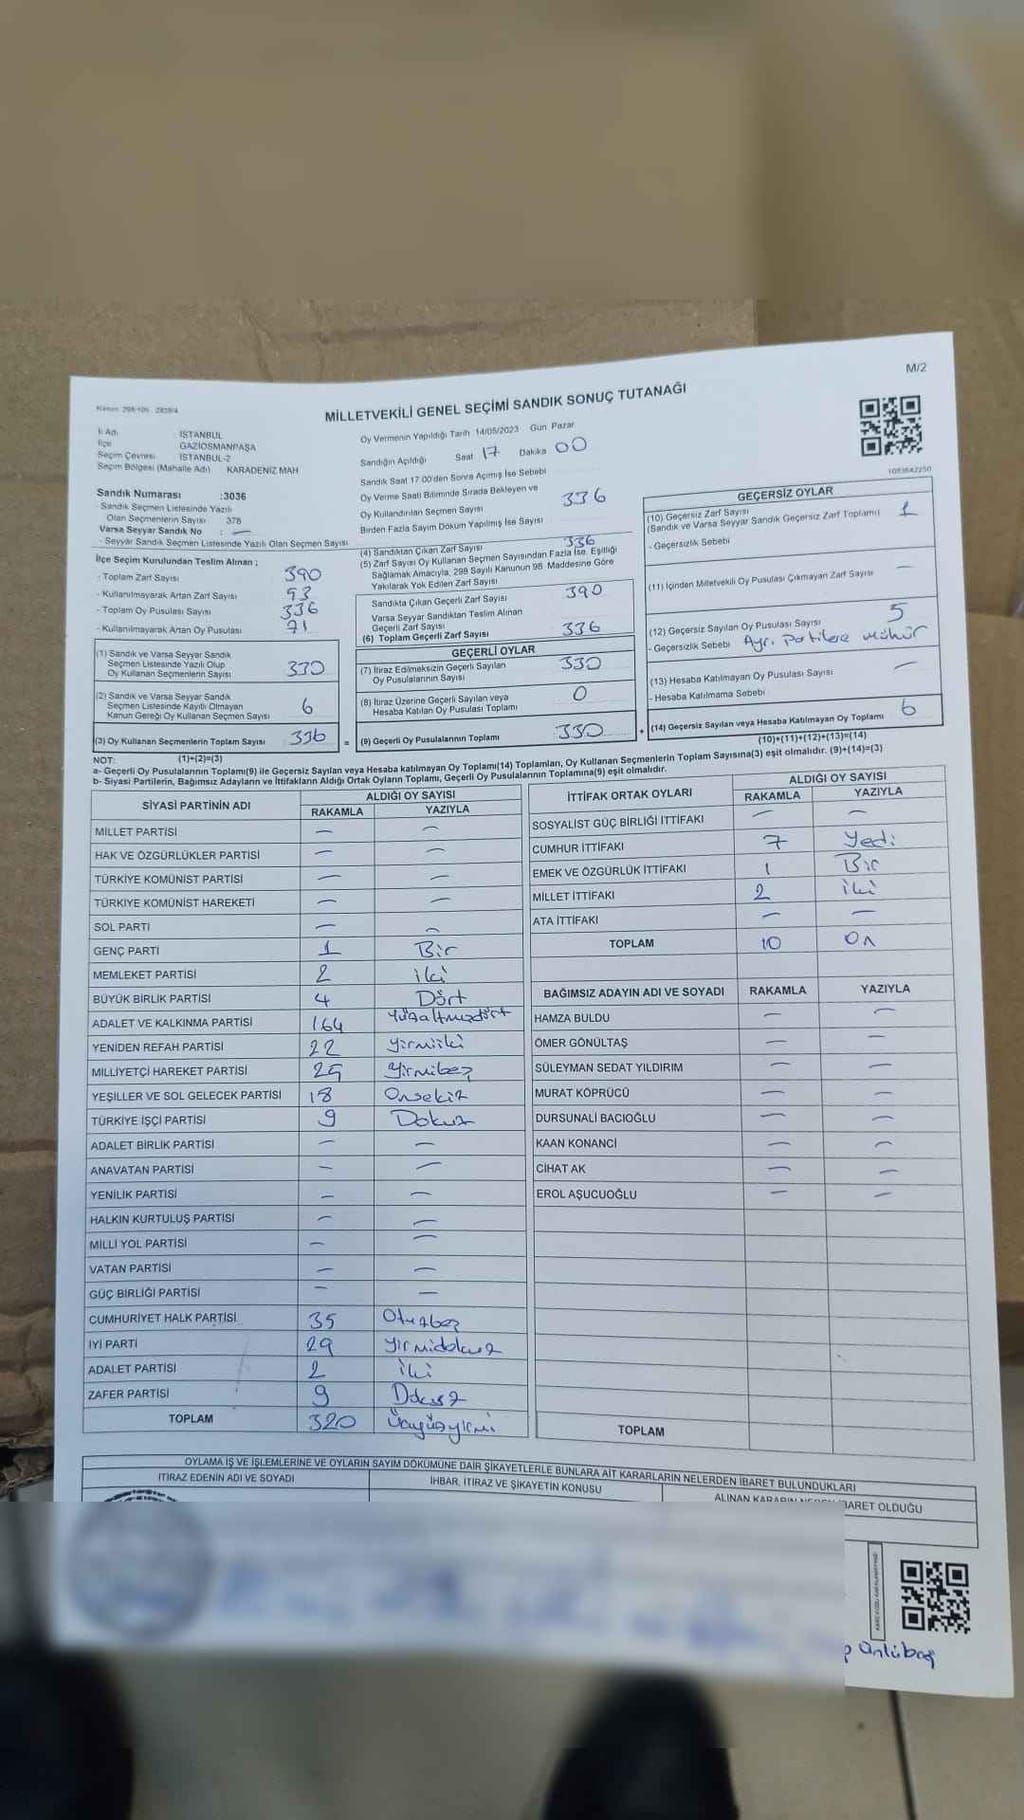 M/2
MİLLETVEKİLİ GENEL SEÇİMİ SANDIK SONUÇ TUTANAĞI
İl Adı : İSTANBUL
İlçe : GAZİOSMANPAŞA
Seçim Çevresi : İSTANBUL-2
Seçim Bölgesi (Mahalle Adı) KARADENİZ MAH
Oy Vermenin Yapıldığı Tarih 14/05/2023 Gün Pazar
Sandığın Açıldığı Saat 17 Dakika 00
Sandık Saat 17.00'den Sonra Açılmış İse Sebebi
1053642250
Sandık Numarası :3036
Sandık Seçmen Listesinde Yazılı
Olan Seçmenlerin Sayısı 378
Varsa Seyyar Sandık No : —
- Seyyar Sandık Seçmen Listesinde Yazılı Olan Seçmen Sayısı
Oy Verme Saati Bitiminde Sırada Bekleyen ve
Oy Kullandırılan Seçmen Sayısı 336
Birden Fazla Sayım Döküm Yapılmış İse Sayısı
İlçe Seçim Kurulundan Teslim Alınan ;
- Toplam Zarf Sayısı 390
- Kullanılmayarak Artan Zarf Sayısı 93
- Toplam Oy Pusulası Sayısı 336
- Kullanılmayarak Artan Oy Pusulası 71
(1) Sandık ve Varsa Seyyar Sandık
Seçmen Listesinde Yazılı Olup
Oy Kullanan Seçmenlerin Sayısı 330
(2) Sandık ve Varsa Seyyar Sandık
Seçmen Listesinde Kayıtlı Olmayan
Kanun Gereği Oy Kullanan Seçmen Sayısı 6
(3) Oy Kullanan Seçmenlerin Toplam Sayısı 336 =
(1)+(2)=(3)
(4) Sandıktan Çıkan Zarf Sayısı 336
(5) Zarf Sayısı Oy Kullanan Seçmen Sayısından Fazla İse, Eşitliği
Sağlamak Amacıyla, 298 Sayılı Kanunun 98. Maddesine Göre
Yakılarak Yok Edilen Zarf Sayısı
Sandıkta Çıkan Geçerli Zarf Sayısı 390
Varsa Seyyar Sandıktan Teslim Alınan
Geçerli Zarf Sayısı
(6) Toplam Geçerli Zarf Sayısı 336
GEÇERLİ OYLAR
(7) İtiraz Edilmeksizin Geçerli Sayılan
Oy Pusulalarının Sayısı 330
(8) İtiraz Üzerine Geçerli Sayılan veya
Hesaba Katılan Oy Pusulası Toplamı 0
(9) Geçerli Oy Pusulalarının Toplamı 330 +
GEÇERSİZ OYLAR
(10) Geçersiz Zarf Sayısı
(Sandık ve Varsa Seyyar Sandık Geçersiz Zarf Toplamı) 1
- Geçersizlik Sebebi
(11) İçinden Milletvekili Oy Pusulası Çıkmayan Zarf Sayısı —
(12) Geçersiz Sayılan Oy Pusulası Sayısı 5
- Geçersizlik Sebebi Ayrı partilere mühür
(13) Hesaba Katılmayan Oy Pusulası Sayısı —
- Hesaba Katılmama Sebebi
(14) Geçersiz Sayılan veya Hesaba Katılmayan Oy Toplamı 6
(10)+(11)+(12)+(13)=(14)
NOT:
a- Geçerli Oy Pusulalarının Toplamı(9) ile Geçersiz Sayılan veya Hesaba katılmayan Oy Toplamı(14) Toplamları, Oy Kullanan Seçmenlerin Toplam Sayısına(3) eşit olmalıdır. (9)+(14)=(3)
b- Siyasi Partilerin, Bağımsız Adayların ve İttifakların Aldığı Ortak Oyların Toplamı, Geçerli Oy Pusulalarının Toplamına(9) eşit olmalıdır.
SİYASİ PARTİNİN ADI ALDIĞI OY SAYISI
RAKAMLA YAZIYLA
MİLLET PARTİSİ — —
HAK VE ÖZGÜRLÜKLER PARTİSİ — —
TÜRKİYE KOMÜNİST PARTİSİ — —
TÜRKİYE KOMÜNİST HAREKETİ — —
SOL PARTİ — —
GENÇ PARTİ 1 Bir
MEMLEKET PARTİSİ 2 iki
BÜYÜK BİRLİK PARTİSİ 4 Dört
ADALET VE KALKINMA PARTİSİ 164 Yüzaltmışdört
YENİDEN REFAH PARTİSİ 22 yirmiiki
MİLLİYETÇİ HAREKET PARTİSİ 25 Yirmibeş
YEŞİLLER VE SOL GELECEK PARTİSİ 18 Onsekiz
TÜRKİYE İŞÇİ PARTİSİ 9 Dokuz
ADALET BİRLİK PARTİSİ — —
ANAVATAN PARTİSİ — —
YENİLİK PARTİSİ — —
HALKIN KURTULUŞ PARTİSİ — —
MİLLİ YOL PARTİSİ — —
VATAN PARTİSİ — —
GÜÇ BİRLİĞİ PARTİSİ — —
CUMHURİYET HALK PARTİSİ 35 Otuzbeş
İYİ PARTİ 29 yirmidokuz
ADALET PARTİSİ 2 iki
ZAFER PARTİSİ 9 Dokuz
TOPLAM 320 Üçyüzyirmi
İTTİFAK ORTAK OYLARI ALDIĞI OY SAYISI
RAKAMLA YAZIYLA
SOSYALİST GÜÇ BİRLİĞİ İTTİFAKI — —
CUMHUR İTTİFAKI 7 Yedi
EMEK VE ÖZGÜRLÜK İTTİFAKI 1 Bir
MİLLET İTTİFAKI 2 iki
ATA İTTİFAKI — —
TOPLAM 10 On
BAĞIMSIZ ADAYIN ADI VE SOYADI RAKAMLA YAZIYLA
HAMZA BULDU — —
ÖMER GÖNÜLTAŞ — —
SÜLEYMAN SEDAT YILDIRIM — —
MURAT KÖPRÜCÜ — —
DURSUNALİ BACIOĞLU — —
KAAN KONANCİ — —
CİHAT AK — —
EROL AŞUCUOĞLU — —
TOPLAM
OYLAMA İŞ VE İŞLEMLERİNE VE OYLARIN SAYIM DÖKÜMÜNE DAİR ŞİKAYETLERLE BUNLARA AİT KARARLARIN NELERDEN İBARET BULUNDUKLARI
İTİRAZ EDENİN ADI VE SOYADI İHBAR, İTİRAZ VE ŞİKAYETİN KONUSU ALINAN KARARIN NEDEN İBARET OLDUĞU
Ünlübaş